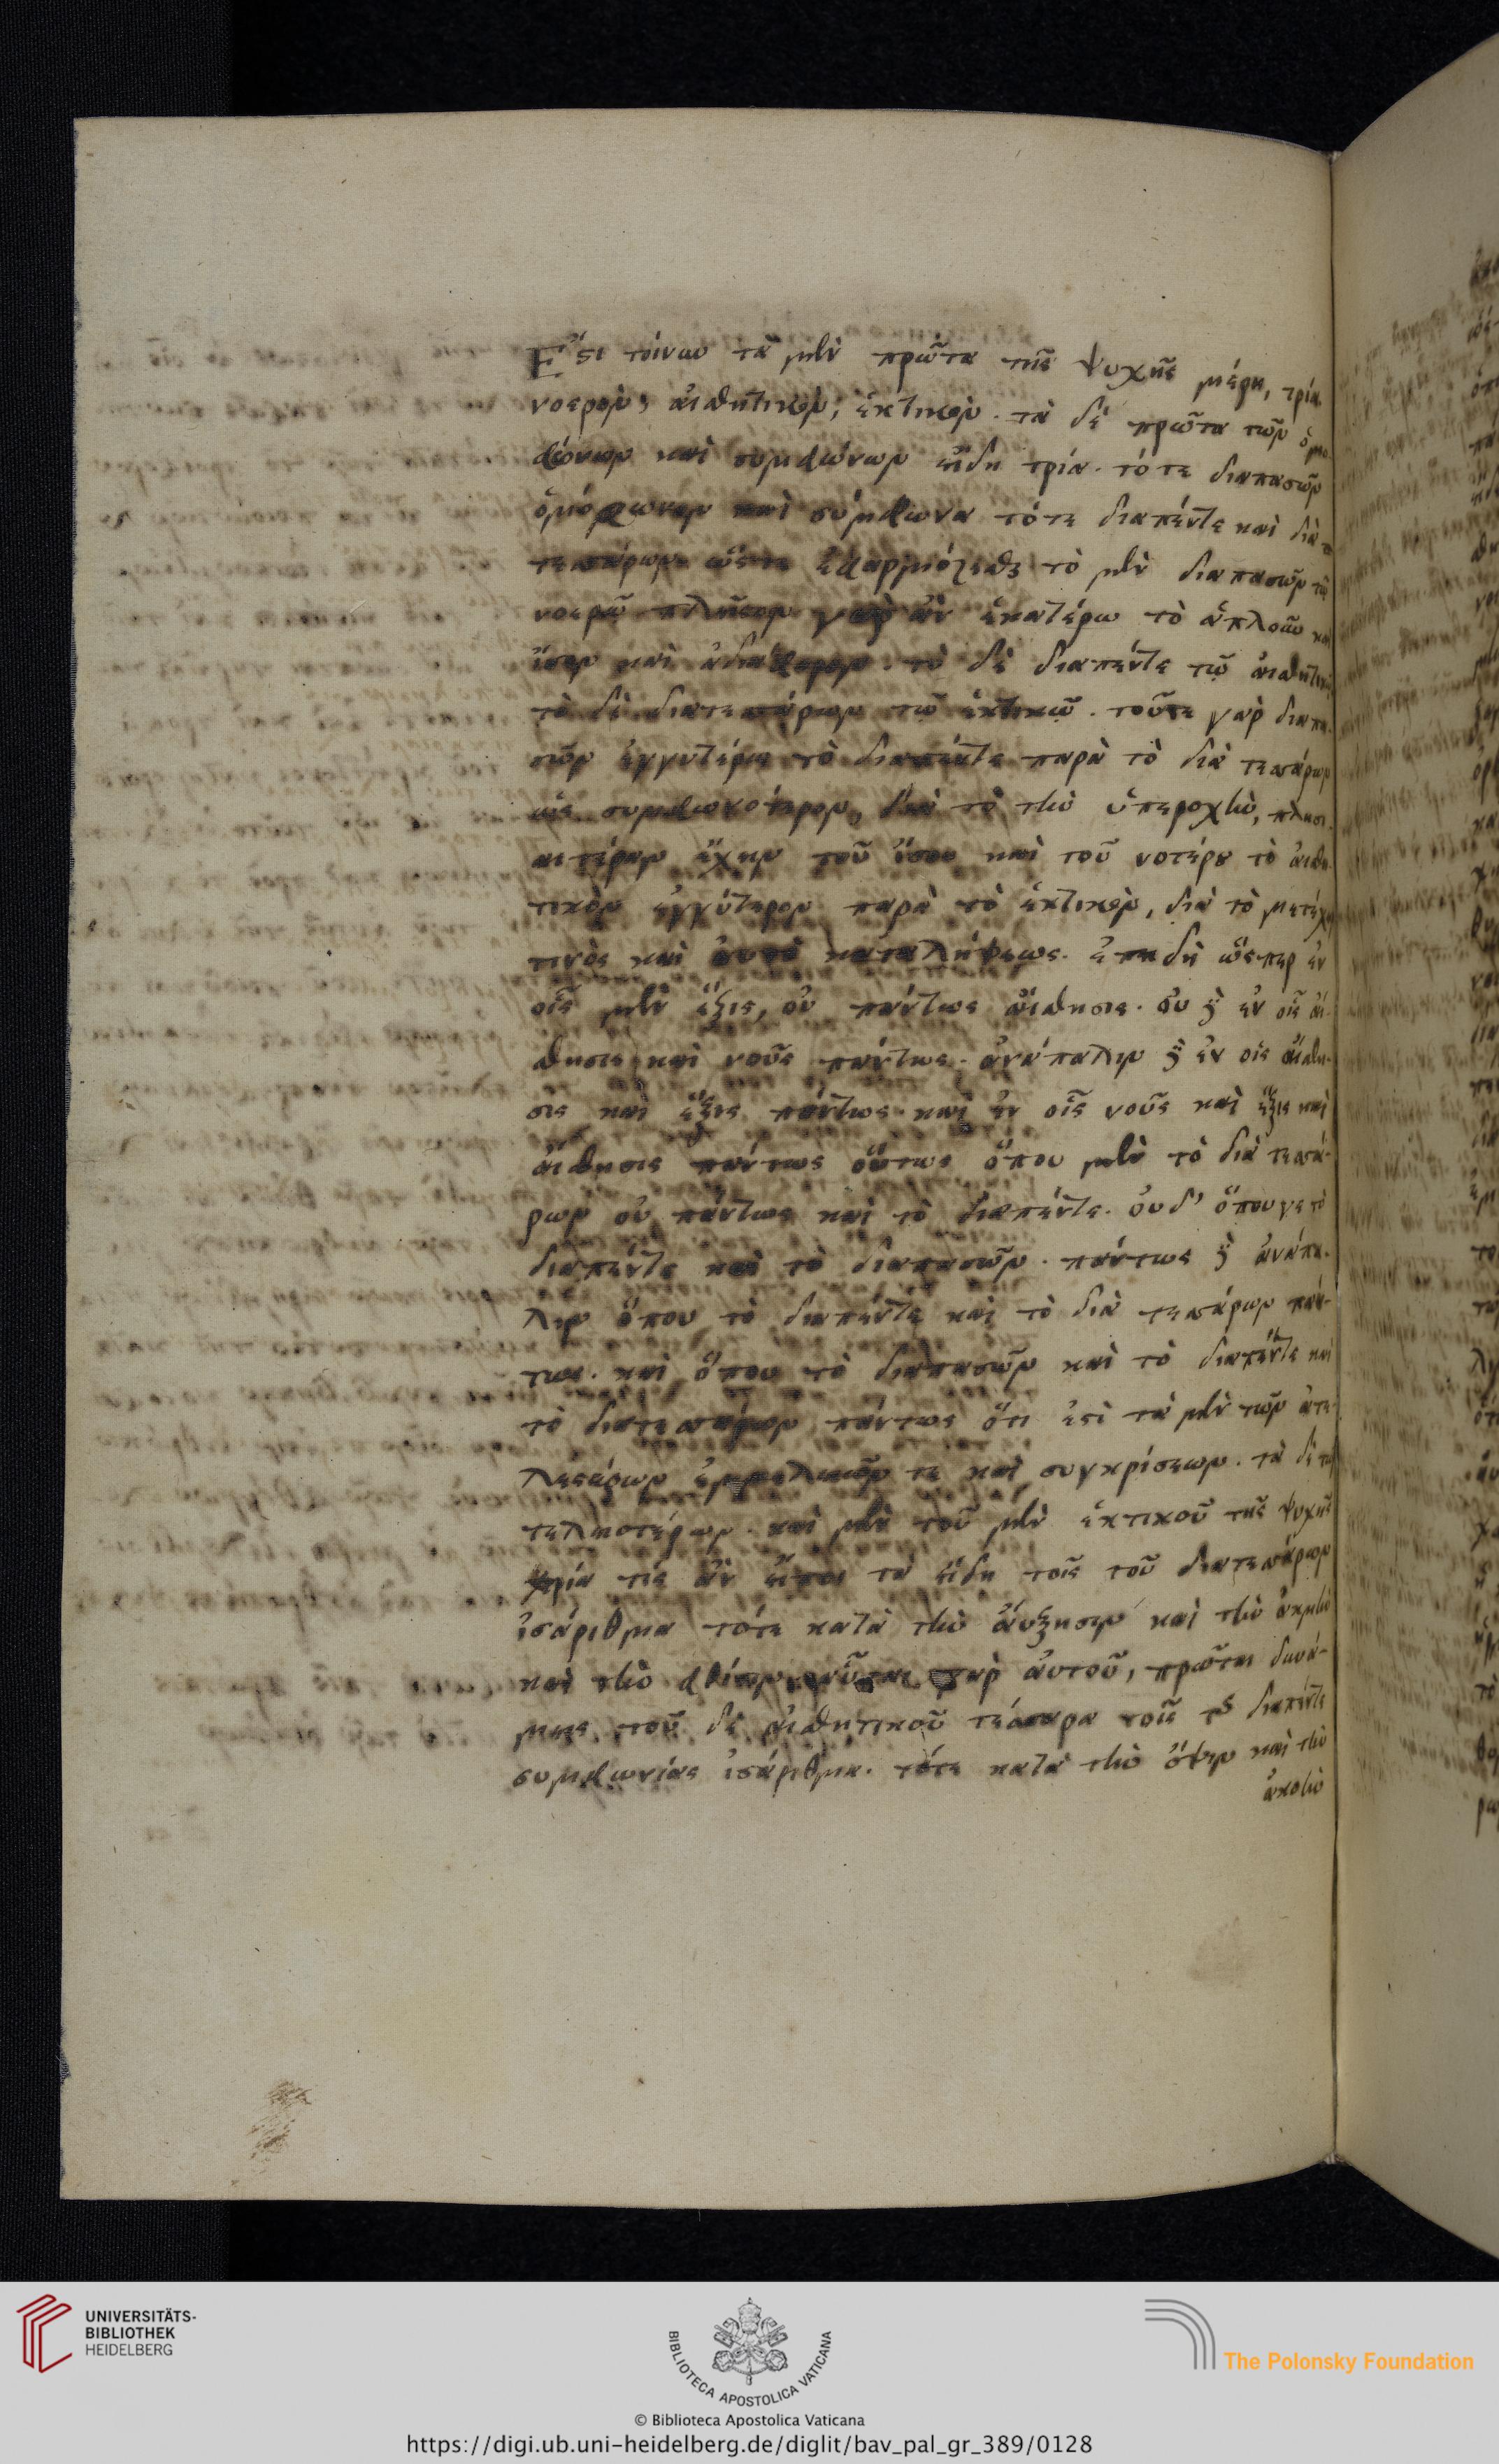 Ἔστι τοίνυν τὰ μὲν πρῶτα τῆς ψυχῆς μέρη, τρία
νοερὸν, αἰσθητικὸν, ἑκτικὸν. τὰ δὲ πρῶτα τῶν ὁμο
φώνων καὶ συμφώνων εἴδη τρία. τό τε διαπασῶν
ὁμόφωνον καὶ σύμφωνα τό τε διαπέντε καὶ διὰ τ
τεσσάρων. ὥστε ἐφαρμόζεσθαι τὸ μὲν διαπασῶν τῶ
νοερῶ πλεῖστον γὰρ ἐν ἑκατέρω τὸ ἁπλοῦν και
ἴσον καὶ ἀδιάφορον. τὸ δὲ διαπέντε τῶ αἰσθητικῶ
τὸ δὲ διατεσσάρων τῶ ἑκτικῶ. τοῦτε γὰρ διαπα
σῶν ἐγγυτέρω τὸ διαπέντε παρὰ τὸ διὰ τεσσάρων
ὡς συμφωνότερον, διὰ τὸ τὴν ὑπεροχὴν, πλησι
αιτέραν ἔχειν τοῦ ἴσου καὶ τοῦ νοτέρου τὸ αἰσθη
τικὸν ἐγγύτερον παρὰ τὸ ἑκτικὸν, διὰ τὸ μετέχειν
τινὸς καὶ αὐτὸ καταλήψεως. ἐπειδὴ ὥσπερ ἐν
οἷς μὲν ἕξις, οὐ πάντως αἴσθησις. οὐ δὲ ἐν οἷς αἴ-
σθησις καὶ νοῦς πάντως. ἀνάπαλιν δὲ ἐν οἷς αἴσθη-
σις καὶ ἕξις πάντως. καὶ ἐν οἷς νοῦς καὶ ἕξις καὶ
αἴσθησις πάντως οὕτως ὅπου μὲν τὸ διὰ τεσσά-
ρων οὐ πάντως καὶ τὸ διαπέντε. οὐδ' ὅπου γε τὸ
διαπέντε καὶ τὸ διαπασῶν. πάντως δὲ ἀνάπα-
λιν ὅπου τὸ διαπέντε καὶ τὸ διὰ τεσσάρων πάν-
τως. καὶ ὅπου τὸ διαπασῶν καὶ τὸ διαπέντε καὶ
τὸ διατεσσάρων πάντως ὅτι ἐστὶ τὰ μὲν τῶν ἀτε-
λεστέρων ἐμμελειῶν τε καὶ συγκρίσεων. τὰ δὲ τῶν
τελειοτέρων. καὶ μὲν τοῦ μὲν ἑκτικοῦ τῆς ψυχῆς
τρία τις ἂν εἴποι τὰ εἴδη τοῖς τοῦ διατεσσάρων
ἰσάριθμα τότε κατὰ τὴν αὔξησιν καὶ τὴν ἀκμὴν
καὶ τὴν φθίσιν αὗται γὰρ αὐτοῦ, πρῶται δυνά-
μεις τοῦ δὲ αἰσθητικοῦ τέσσαρα τοῖς τοῦ διαπέντε
συμφωνίας ἰσάριθμα. τότε κατὰ τὴν ὄψιν καὶ τὴν
ἀκοὴν
UNIVERSITÄTS-
BIBLIOTHEK
HEIDELBERG
BIBLIOTECA APOSTOLICA VATICANA
The Polonsky Foundation
© Biblioteca Apostolica Vaticana
https://digi.ub.uni-heidelberg.de/diglit/bav_pal_gr_389/0128